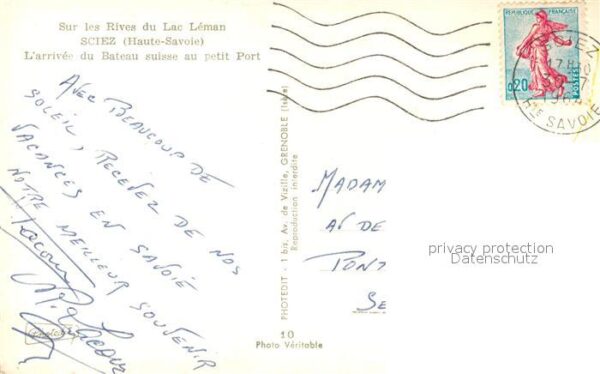 Sur les Rives du Lac Léman
SCIEZ (Haute-Savoie)
L'arrivée du Bateau suisse au petit Port
REPUBLIQUE FRANÇAISE
0,20
POSTES
SCIEZ
17H
196
HTE SAVOIE
AVEC BEAUCOUP DE
SOLEIL, RECEVEZ DE NOS
VACANCES EN SAVOIE
NOTRE MEILLEUR SOUVENIR
PHOTEDIT - 1 bis, Av. de Vizille, GRENOBLE (Isère)
Reproduction interdite
MADAM
AV DE
PONT
SE
privacy protection
Datenschutz
10
Photo Véritable